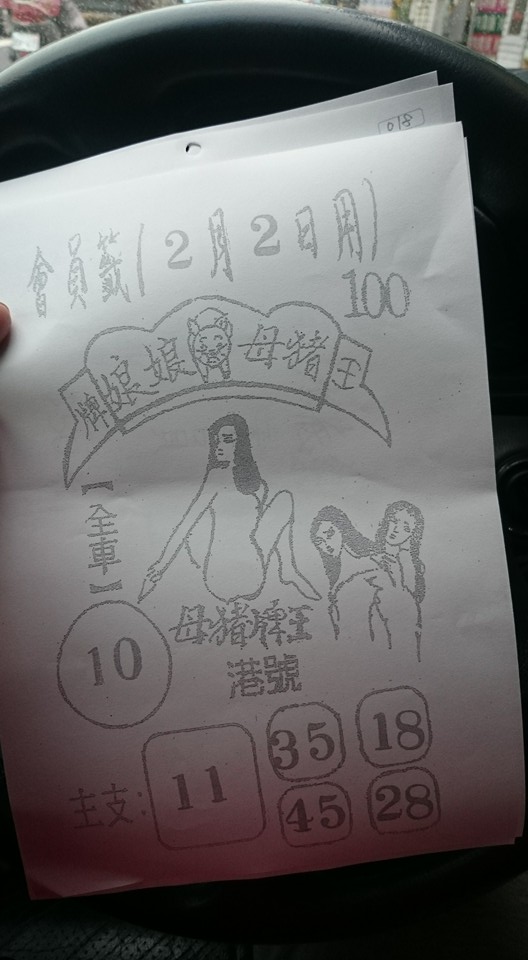 018
會員籤(2月2日用)
100
牌娘娘母豬王
【全車】
10
母豬牌王
港號
主支：11
35 18
45 28